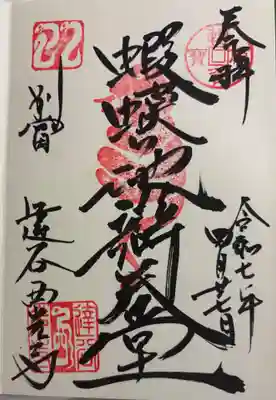 奉拝
令和七年
四月廿七日
蝦蟆池辯天堂
別當
達谷西光寺